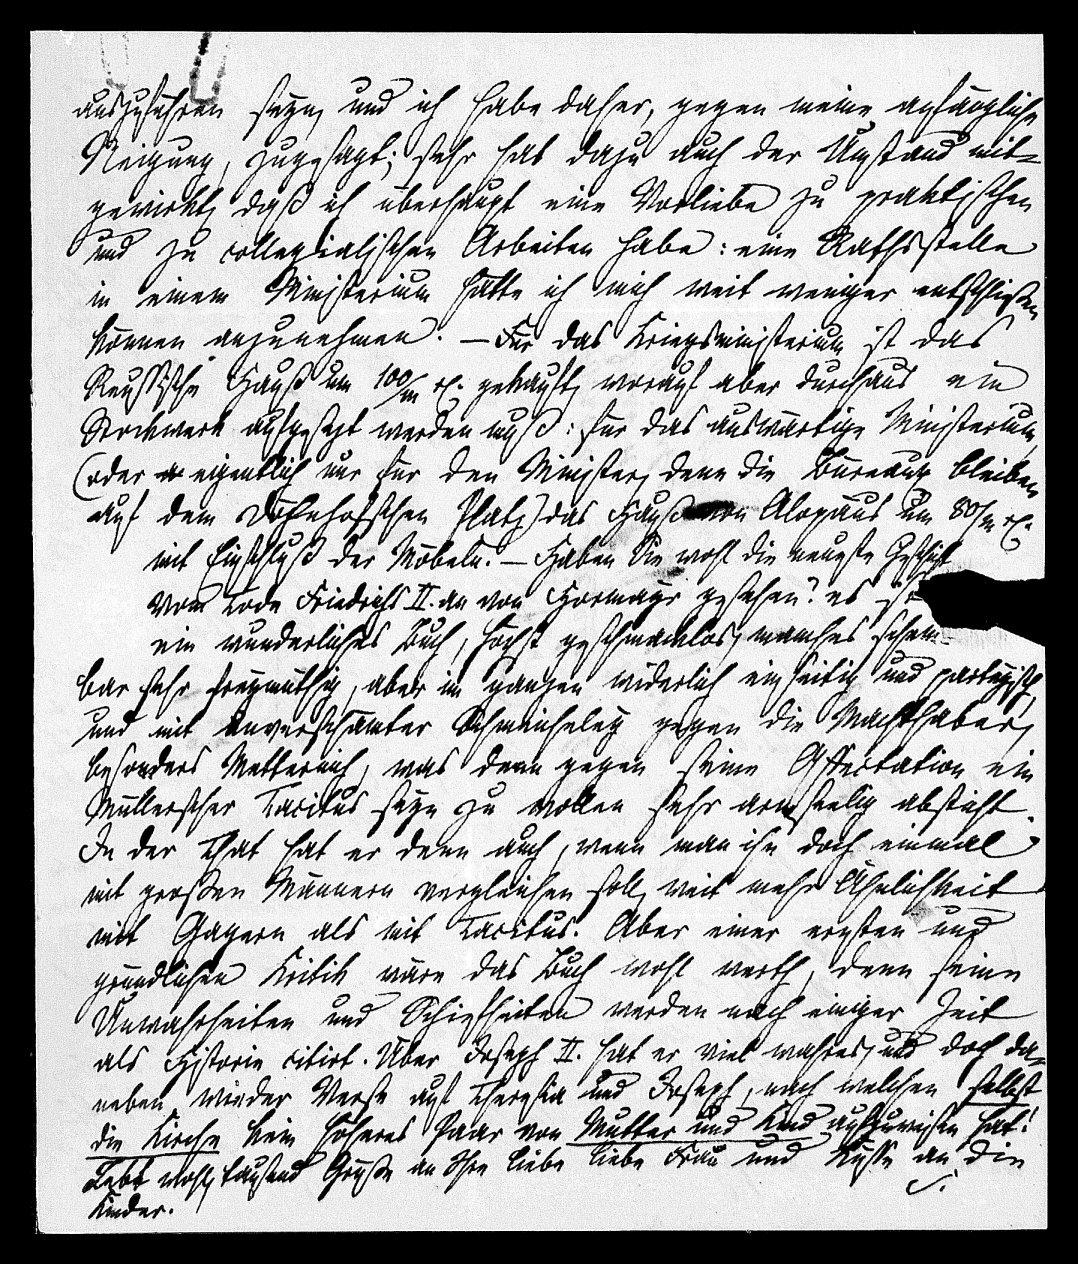 auszuführen seyn, und ich habe daher, gegen meine anfängliche
Neigung, zugesagt; sehr hat dazu auch der Umstand mit-
gewirkt, daß ich überhaupt eine Vorliebe zu praktischen
und zu collegialischen Arbeiten habe: eine Rathsstelle
in einem Ministerium hätte ich mich weit weniger entschließen
können anzunehmen. – Für das Kriegsministerium ist das
Reußische Hauß um 100/m rh. gekauft, worauf aber durchaus ein
Stockwerk aufgesezt werden muß: für das auswärtige Ministerium
(oder eigentlich nur für den Minister, denn die Bureaux bleiben
auf dem Dönhofschen Platz) das Hauß von Alopäus um 80/m rh.
mit Einschluß der Möbeln. – Haben Sie wohl die neuste Geschicht
vom Tode Friedrichs II. an von Hormayr gesehen? es ist
ein wunderliches Buch, höchst geschmacklos, manches schein-
bar sehr freymüthig, aber im ganzen widerlich einseitig und parteyisch
und mit unverschämter Schmeicheley gegen die Machthaber,
besonders Metternich, was denn gegen seine Affectation ein
Müllerscher Tacitus seyn zu wollen sehr armseelig absticht.
In der That hat er denn auch, wenn man ihn doch einmal
mit großen Männern vergleichen soll, weit mehr Ähnlichkeit
mit Gagern als mit Tacitus. Aber einer ernsten und
gründlichen Kritik wäre das Buch wohl werth, denn seine
Unwahrheiten und Schiefheiten werden nach einiger Zeit
als Historie citirt. Über Joseph II. hat er viel wahres, und doch da-
neben wieder Verse auf Theresia und Joseph, nach welchen selbst
die Kirche kein höheres Paar von Mutter und Kind aufzuweisen hat!
Lebt wohl, tausend Grüße an Ihre liebe liebe Frau und Küsse an die
Kinder. S.